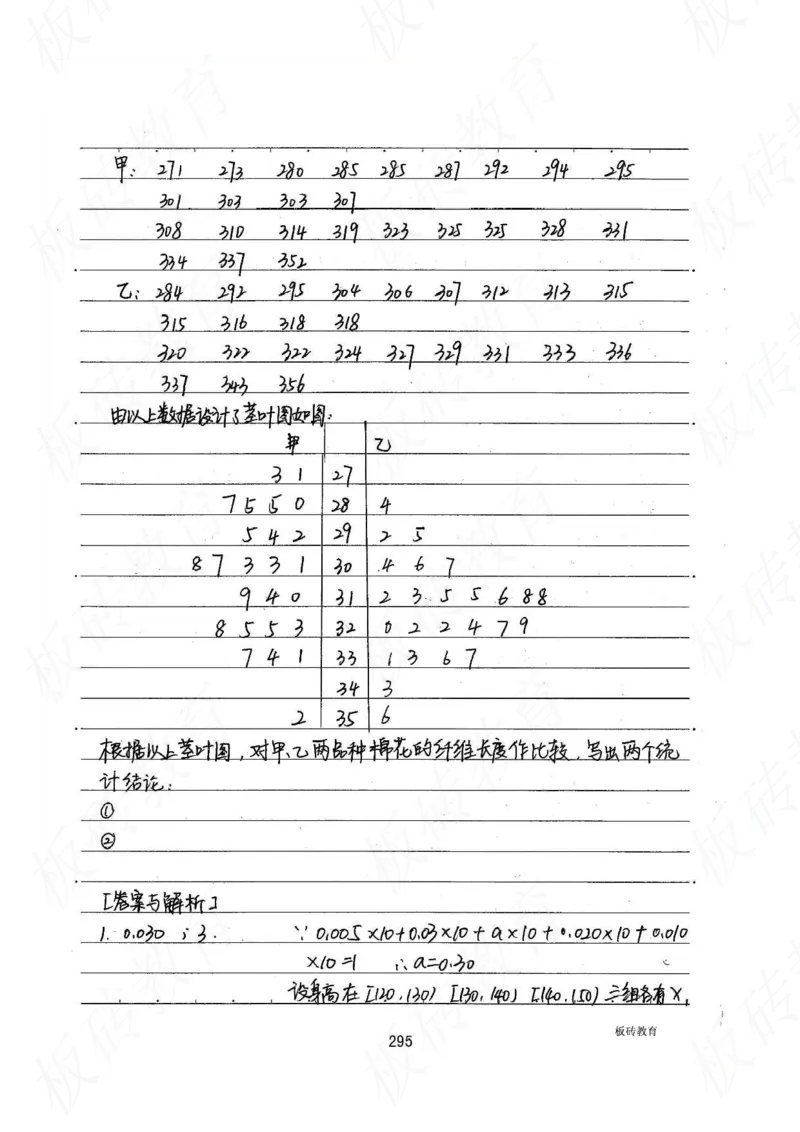 甲: 271 273 280 285 285 287 292 294 295
301 303 303 307
308 310 314 319 323 325 325 328 331
334 337 352
乙: 284 292 295 304 306 307 312 313 315
315 316 318 318
320 322 322 324 327 329 331 333 336
337 343 356
由以上数据设计了茎叶图如图:
甲 乙
3 1 27
7 5 5 0 28 4
5 4 2 29 2 5
8 7 3 3 1 30 4 6 7
9 4 0 31 2 3 5 5 6 8 8
8 5 5 3 32 0 2 2 4 7 9
7 4 1 33 1 3 6 7
34 3
2 35 6
根据以上茎叶图,对甲、乙两品种棉花的纤维长度作比较,写出两个统
计结论:
①
②
[答案与解析]
1. 0.030 ; 3. ∵ 0.005×10+0.03×10+a×10+0.020×10+0.010
×10=1 ∴a=0.30
设身高在[120,130) [130,140) [140,150)三组各有x,
295
板砖教育